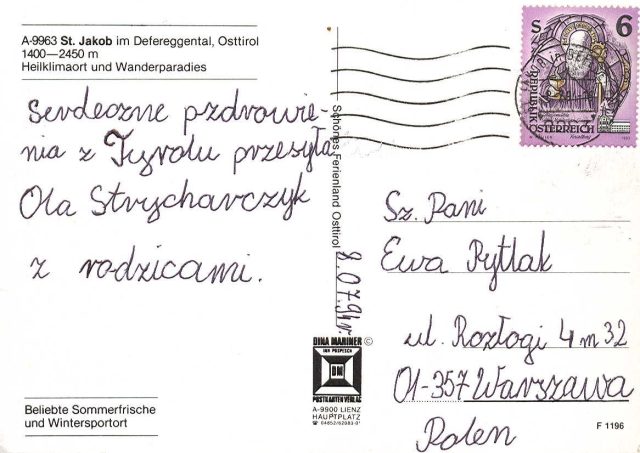 A-9963 St. Jakob im Defereggental, Osttirol
1400—2450 m
Heilklimaort und Wanderparadies
Serdeczne pzdrowie-
nia z Tyrolu przesyła
Ola Strycharczyk
z rodzicami.
Beliebte Sommerfrische
und Wintersportort
Schönes Ferienland Osttirol
8.07.94r.
DINA MARINER ©
INH POSPESCH
DM
POSTKARTEN VERLAG
A-9900 LIENZ
HAUPTPLATZ
☎ 04852/62083-0*
S 6
REPUBLIK
ÖSTERREICH
Sz. Pani
Ewa Pytlak
ul. Rozłogi 4 m 32
01-357 Warszawa
Polen
F 1196